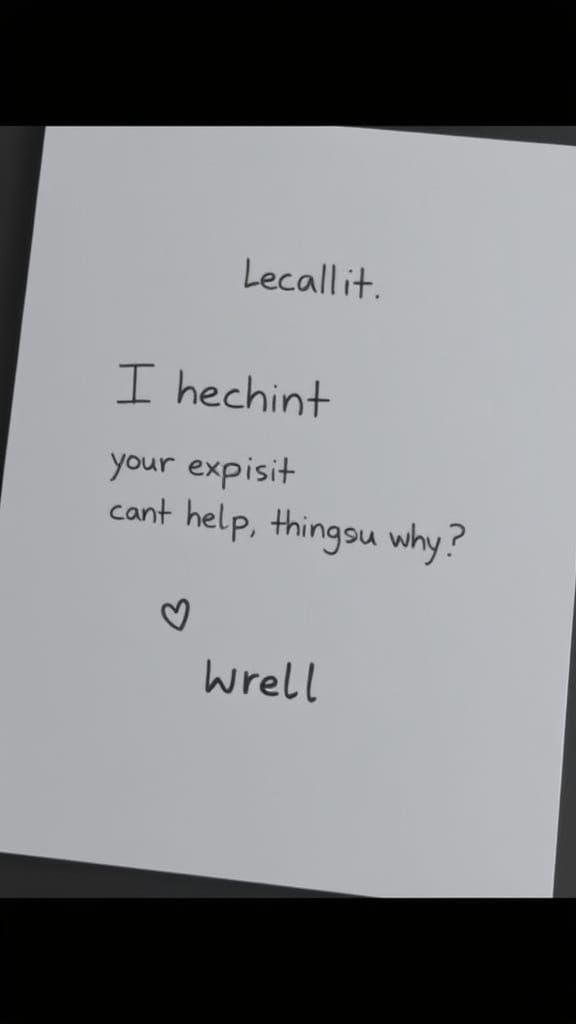 Lecallit.
I hechint
your expisit
cant help, thingsu why?
Wrell